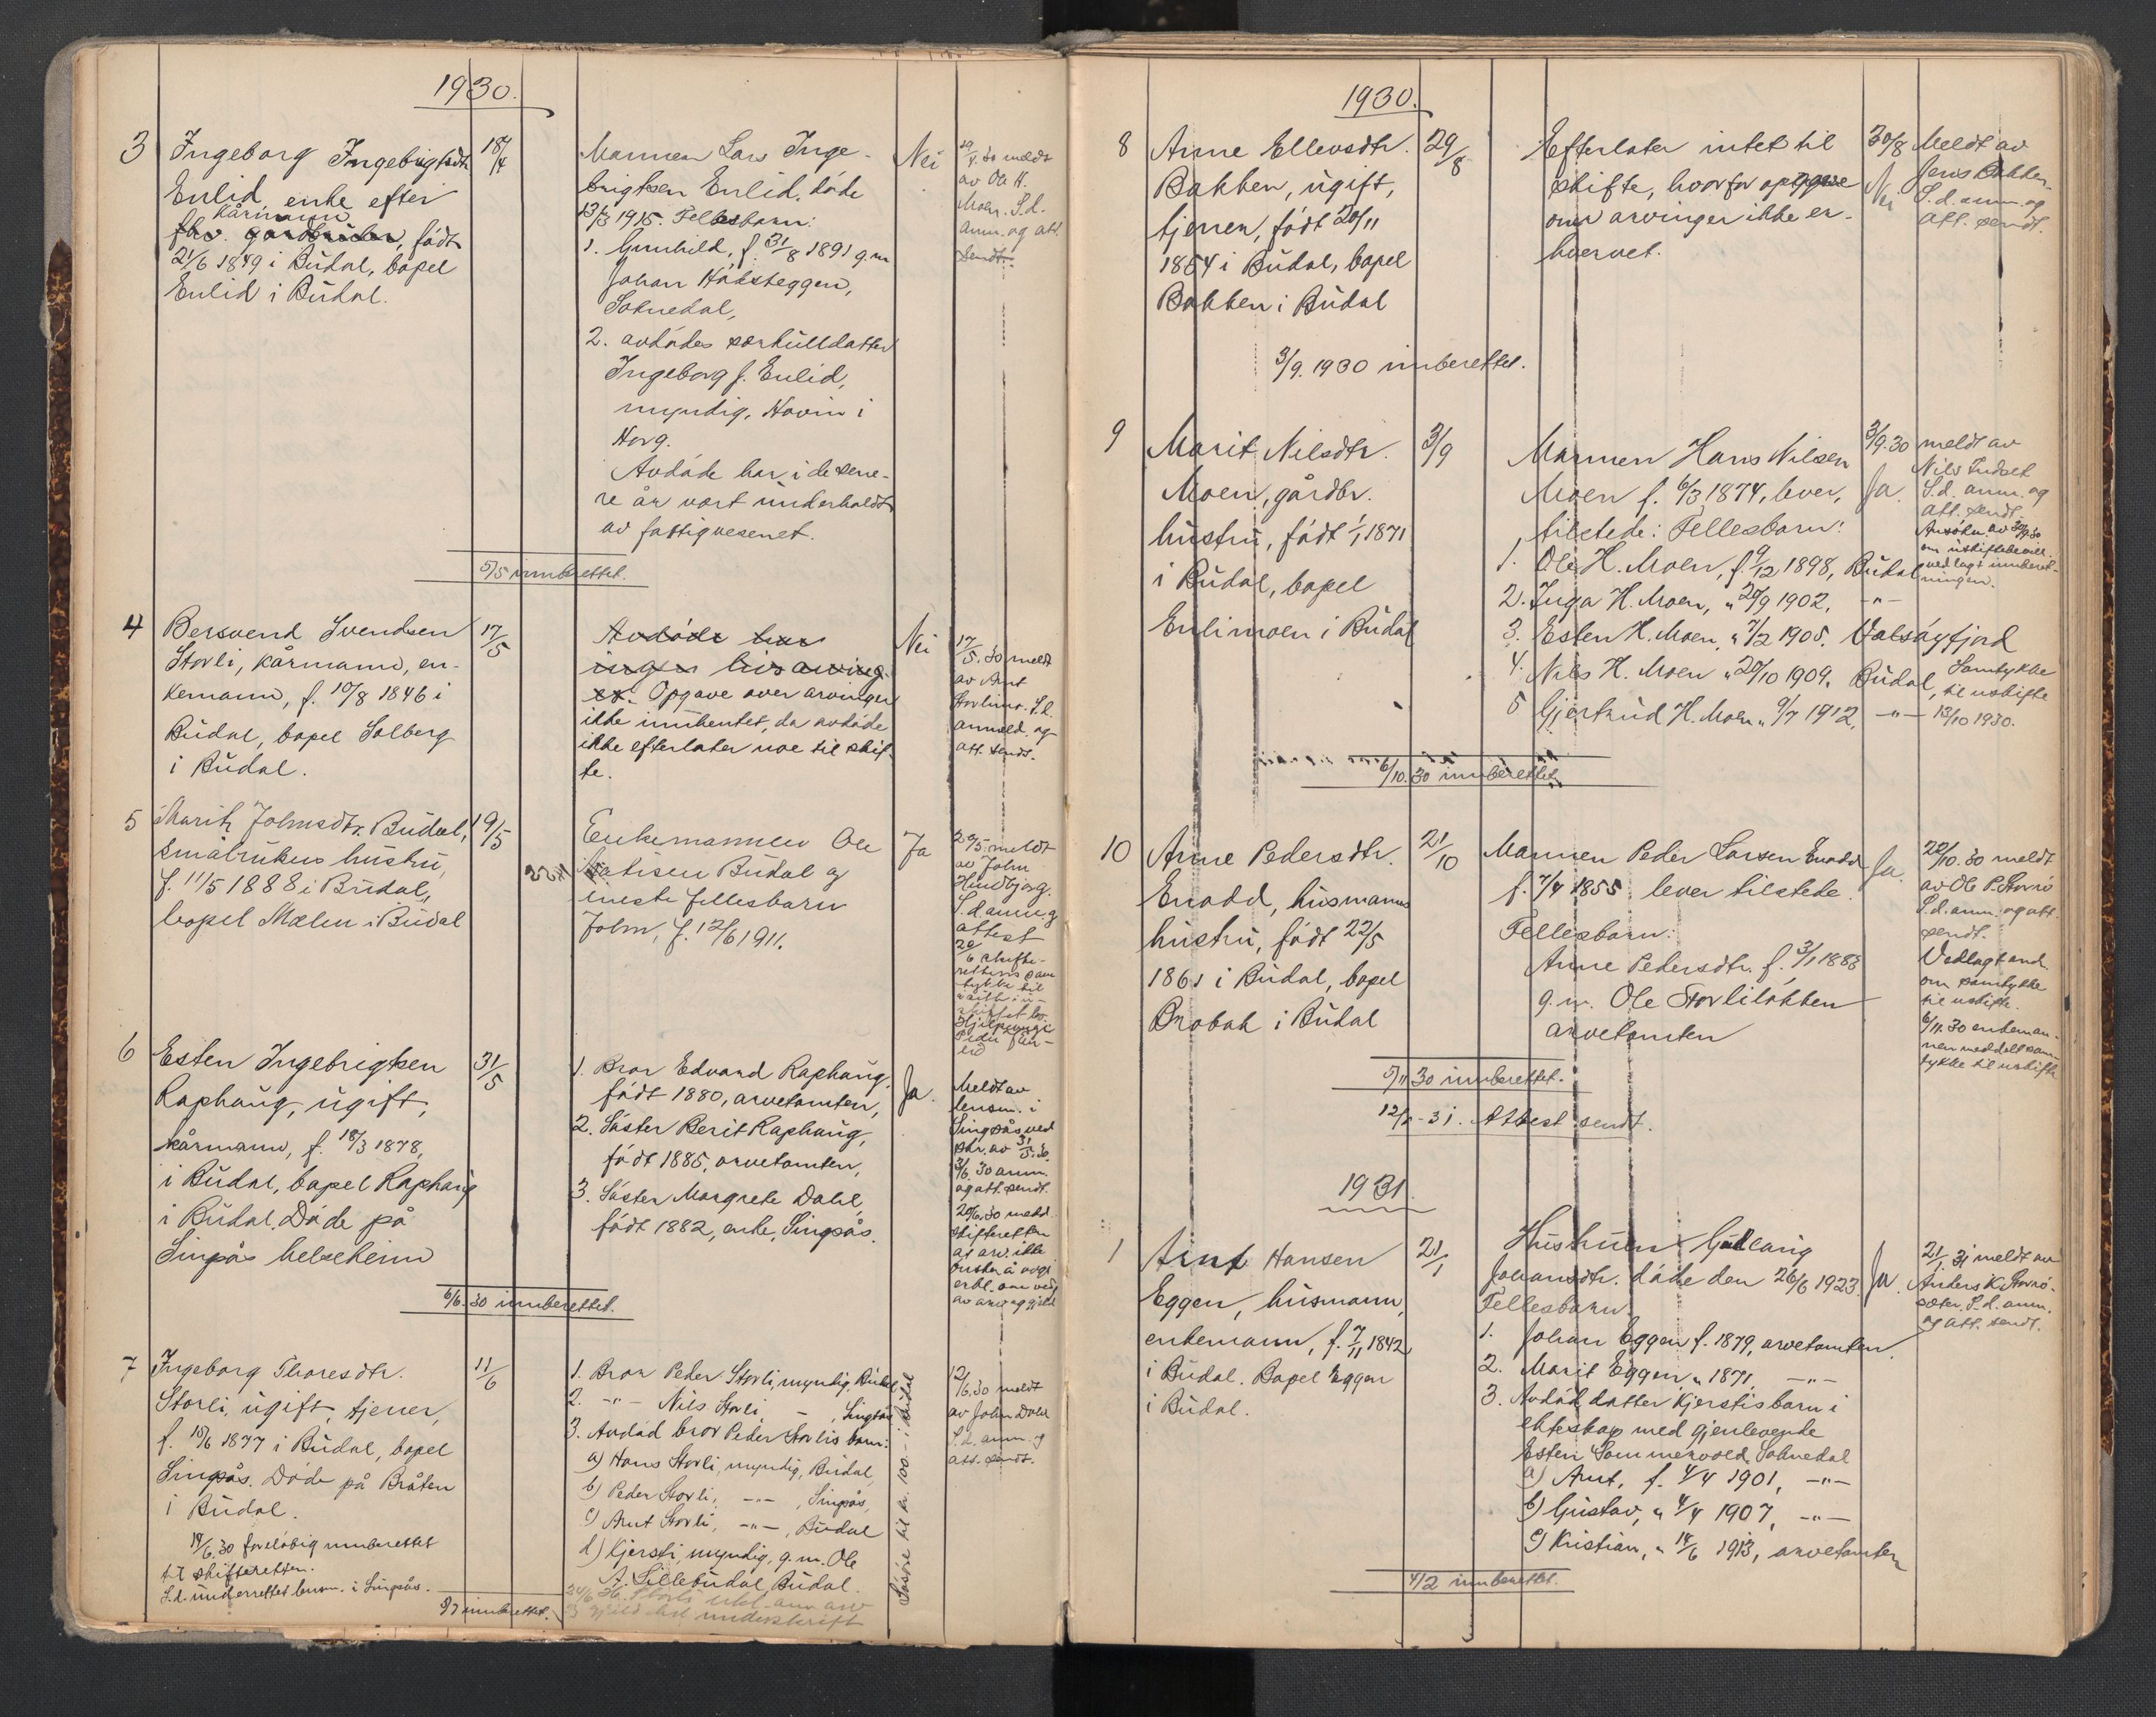 1930.
3
Ingeborg Ingebrigtsdtr.
Enlid, enke efter
kårmann
fhv. gardbruker, født
21/6 1849 i Budal, bopel
Enlid i Budal.
18/4
Mannen Lars Inge-
brigtsen Enlid, døde
13/3 1915. Fellesbarn:
1. Gunhild, f. 31/8 1891 g.m.
Johan Håbsteggen,
Soknedal,
2. avdødes særkulldatter
Ingeborg f. Enlid,
myndig, Hovin i
Horg.
Avdøde har i de sene-
re år vært underholdt
av fattigvesenet.
Nei
av Ole H.
Moen. S.d.
anm. og att.
sendt.
5/5 innberettet.
4
Bersvend Svendsen
Storli, kårmann, en-
kemann, f. 10/8 1846 i
Budal, bopel Solberg
i Budal.
17/5
Avdøde har
ingen livsarving-
er. Opgave over arvinger
ikke innhentet, da avdøde
ikke efterlater noe til skif-
te.
Nei
17/5.30 meldt
av Arnt
Storlimo. S.d.
anmeld. og
att. sendt.
5
Marit Johnsdtr. Budal,
småbrukers hustru,
f. 11/5 1888 i Budal,
bopel Mælen i Budal
19/5
Enkemannen Ole
Budal og
neste fellesbarn
John, f. 12/6 1911.
Ja
20/5 meldt
av John
S.d. anm. og
attest
6
Esten Ingebrigtsen
Raphaug, ugift,
kårmann, f. 18/3 1878,
i Budal, bopel Raphaug
i Budal. Døde på
Singsås helseheim
31/5
1. Bror Edvard Raphaug,
født 1880, arvetomten,
2. Søster Berit Raphaug,
født 1885, arvetomten,
3. Søster Margrete Dahl,
født 1882, enke, Singsås.
Ja.
Meldt av
lensm. i
Singsås ved
skr. av 31/5.30.
3/6.30 anm.
og att. sendt.
20/6.30 medd.
skifteretten
at arv. ikke
ønsker å avgi
erkl. om ved.
av arv og gjeld
6/6.30 innberettet.
7
Ingeborg Thoresdtr.
Storli, ugift, tjener,
f. 18/6 1877 i Budal, bopel
Singsås. Døde på Bråten
i Budal.
14/6.30 foreløbig innberettet
til skifteretten.
S.d. underrettet lensm. i Singsås.
11/6
1. Bror Peder Storli, myndig, Budal
2. -"- Nils Storli, - , Singsås
3. Avdød bror Peder Storlis barn:
a) Hans Storli, myndig, Budal,
b) Peder Storli, -"- , Singsås,
c) Arnt Storli, -"-, Budal
d) Kjersti, myndig, g.m. Ole
A. Lillebudal, Budal.
Løsøre til kr. 100.- i Budal
12/6.30 meldt
av John Dahl
S.d. anm. og
att. sendt.
9/7 innberettet.
underskrift
1930.
8
Anne Ellevsdtr.
Bakken, ugift,
tjener, født 20/11
1854 i Budal, bopel
Bakken i Budal
29/8
Efterlater intet til
skifte, hvorfor opgave
over arvinger ikke er
krevet.
30/8
Nei
Meldt av
Jens Bakken.
S.d. anm. og
att. sendt.
3/9. 1930 innberettet.
9
Marit Nilsdtr.
Moen, gårdbr.
hustru, født 1/1 1871
i Budal, bopel
Enlimoen i Budal
3/9
Mannen Hans Nilsen
Moen f. 6/3 1874, lever,
tilstede: Fellesbarn:
1. Ole H. Moen, f. 9/12 1898, Budal
2. Inga H. Moen, " 29/9 1902, -"-
3. Esten H. Moen, " 7/2 1905. Valsøyfjord
4. Nils H. Moen " 20/10 1909. Budal,
5 Gjertrud H. Moen " 9/7 1912, -"-
3/9.30
Ja.
meldt av
Nils Indset
S.d. anm. og
att. sendt.
Ansøkn. av 30/9.30
om uskiftebevill.
vedlagt innberet-
ningen.
Samtykke
til uskifte
13/10 1930.
6/10.30 innberettet.
10
Anne Pedersdtr.
Enodd, husmanns
hustru, født 22/5
1861 i Budal, bopel
Brobak i Budal
21/10
Mannen Peder Larsen Enodd
f. 7/4 1855 lever tilstede.
Fellesbarn:
Anne Pedersdtr. f. 3/1 1888
g.m. Ole Storliløkken
arvetomten
Ja.
22/10.30 meldt
av Ole P. Storrø
S.d. anm. og att.
sendt.
Vedlagt and.
om samtykke
til uskifte.
6/11.30 enkeman-
nen meddelt sam-
tykke til uskifte
5/11 30 innberettet.
12/1-31. Attest sendt.
1931.
1
Arnt Hansen
Eggen, husmann,
enkemann, f. 7/11 1842
i Budal. Bopel Eggen
i Budal.
21/1
Hustruen Gullaug
Johansdtr. døde den 26/6 1923.
Fellesbarn:
1. Johan Eggen f. 1879, arvetomten.
2. Marit Eggen " 1871, -"-
3. Avdød datter Kjerstis barn i
ekteskap med gjenlevende
Esten Sommervold, Soknedal
a) Arnt, f. 4/4 1901, -"-
b) Gustav, " 4/4 1907, -"-
c) Kristian, " 14/6 1913, arvetomten
Ja.
21/1 31 meldt av
Anders K. Storrø-
sæter. S.d. anm.
og att. sendt.
4/2 innberettet.